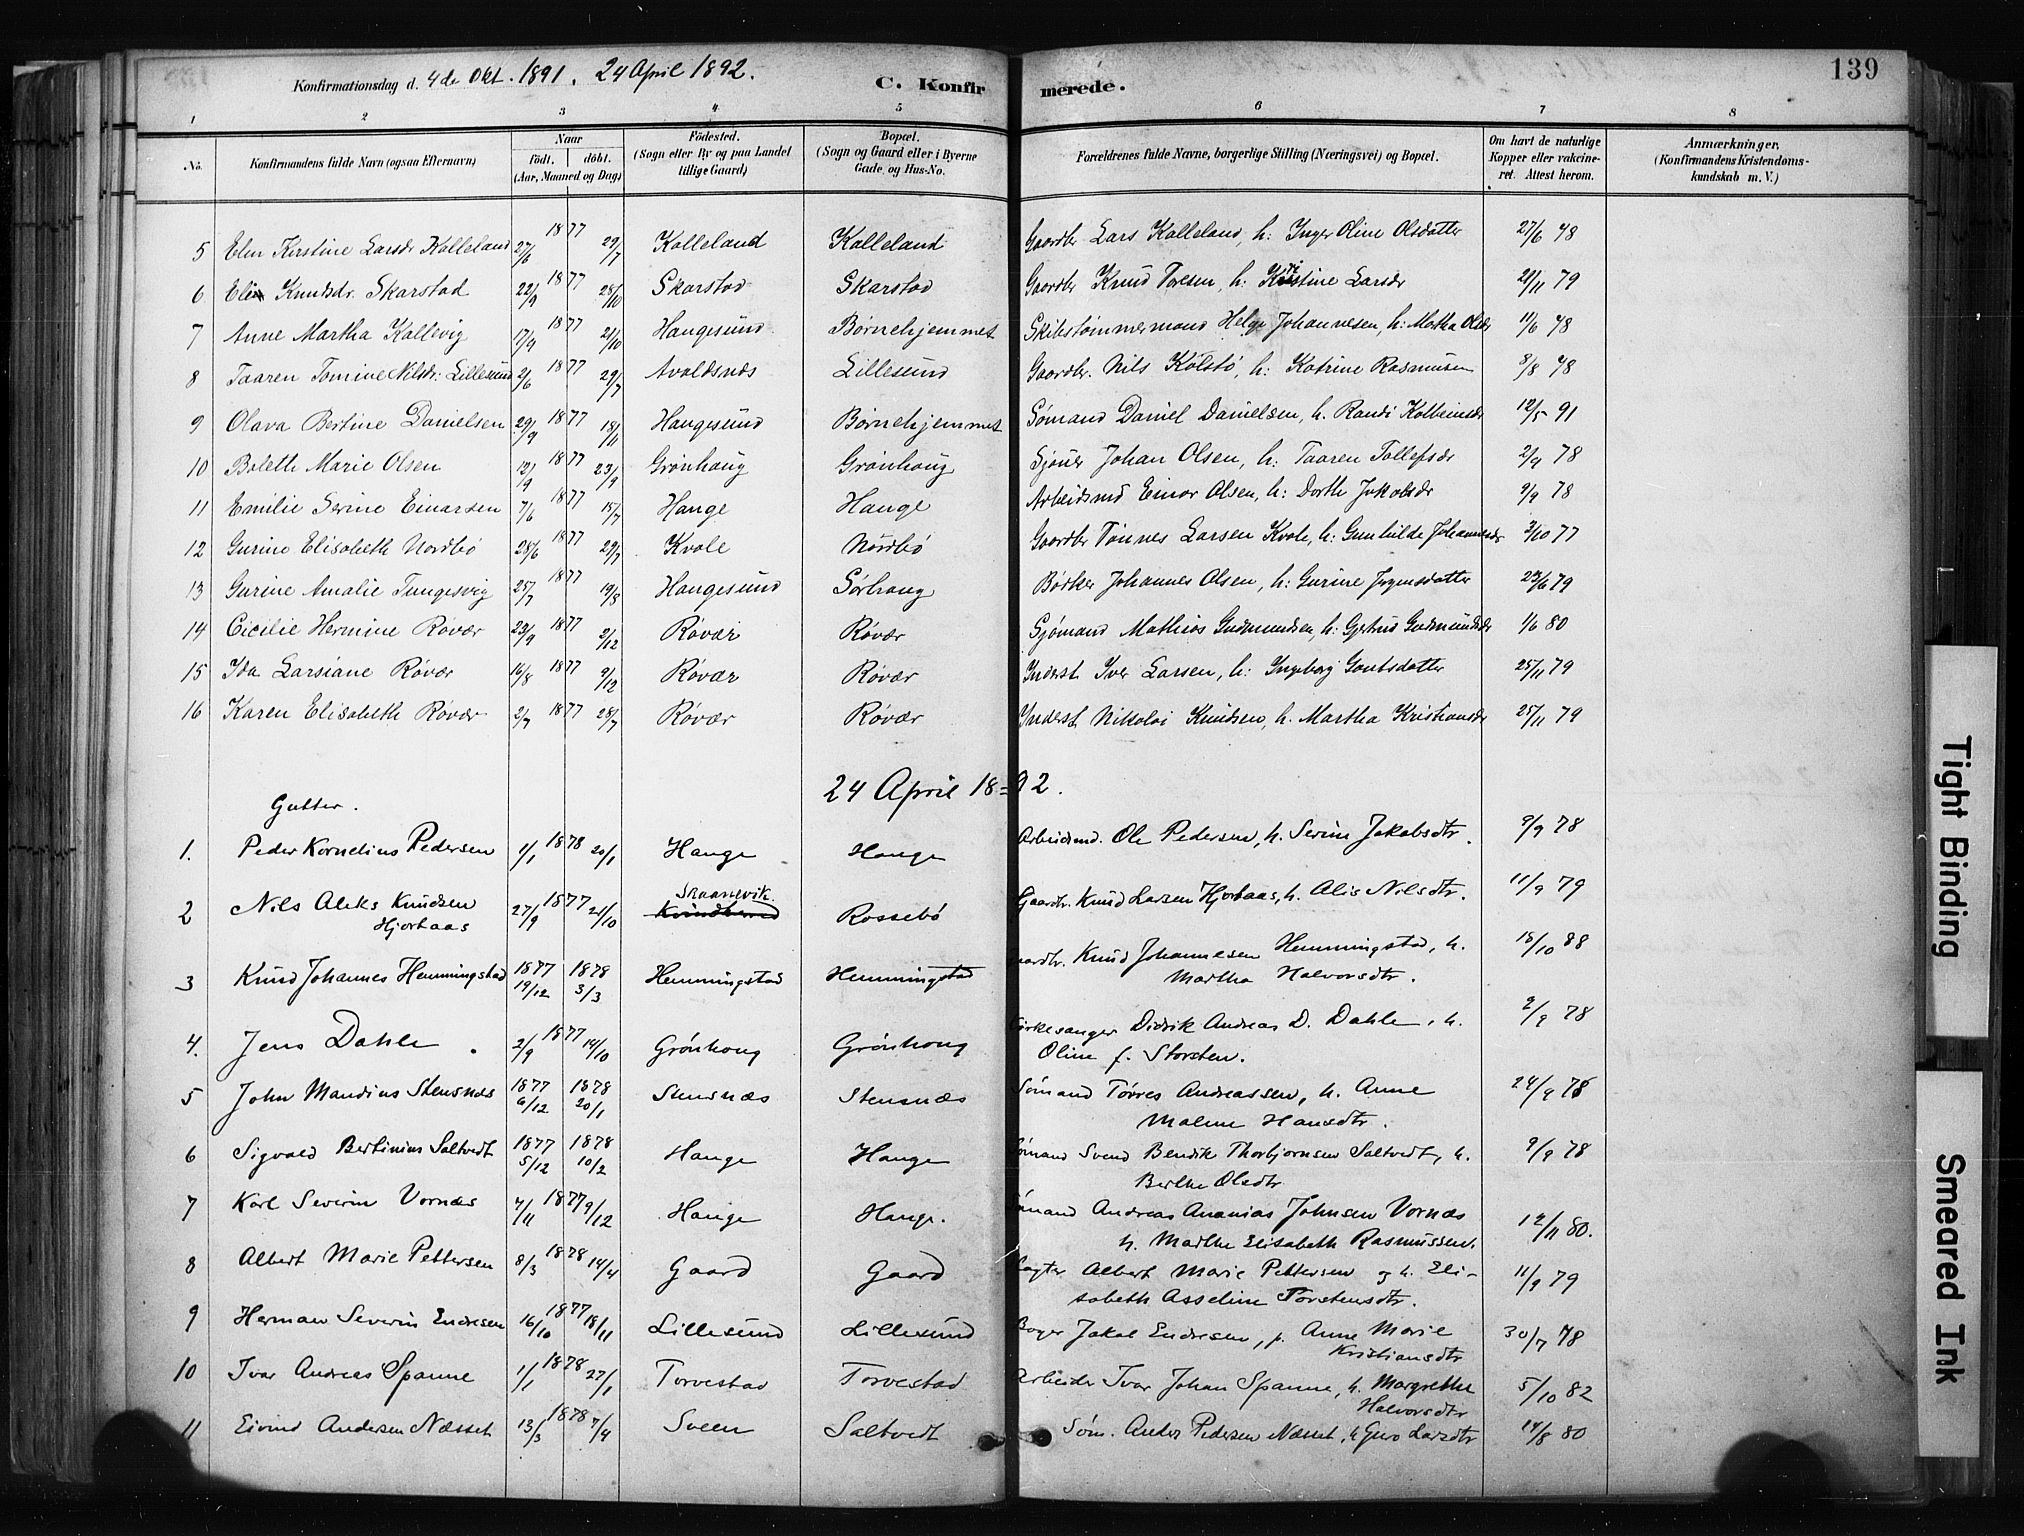 139
Konfirmationsdag d. 4de Okt. 1891. 24 April 1892.
C. Konfirmerede.
1 2 3 4 5 6 7 8
No. Konfirmandens fulde Navn (ogsaa Efternavn) Naar födt. döbt. (Aar, Maaned og Dag) Födested. (Sogn eller By og paa Landet tillige Gaard) Bopæl. (Sogn og Gaard eller i Byerne Gade og Hus-No. Forældrenes fulde Navne, borgerlige Stilling (Næringsvei) og Bopæl. Om havt de naturlige Kopper eller vakcineret. Attest herom. Anmærkninger. (Konfirmandens Kristendomskundskab m. V.)
5 Elen Kirstine Larsdr Kalleland 27/6 1877 29/7 Kalleland Kalleland Gaardbr Lars Kalleland, h: Inger Oline Olsdatter 27/6 48
6 Knudsdr. Skarstad 22/9 1877 28/10 Skarstad Skarstad Gaardbr Knud Toresen, h: Larsdr 21/11 79
7 Anne Martha Kallevig 17/9 1877 21/10 Haugesund Børnehjemmet Skibstømmermand Helge Johannesen, h: Martha Olsdr 11/6 48
8 Taaren Tomine Nilsdr: Lillesund 2/6 1877 29/7 Avaldsnæs Lillesund Gaardbr. Nils Kolstø, h: Katrine Rasmusen 8/8 48
9 Olava Bertine Danielsen 29/9 1877 18/11 Haugesund Børnehjemmet Sømand Daniel Danielsen, h. Randi Kolbeinsdr 12/5 91
10 Boleth Marie Olsen 12/9 1877 23/9 Grønhaug Grønhaug Sjouer Johan Olsen, h: Taaren Tollefsdr 2/9 78
11 Emilie Serine Einarsen 7/6 1877 15/7 Hauge Hauge Arbeidsmd Einar Olsen, h: Dorth Jakobsdr 9/9 78
12 Gurine Elisabeth Nordbø 28/6 1877 29/7 Kvale Nordbø Gaardbr Tønnes Larsen Kvale, h: Gunhilde Johannesdr 3/10 77
13 Gurine Amalie Tungesvig 25/7 1877 19/8 Haugesund Sørhaug Bødker Johannes Olsen, h: Gurine Jørgensdatter 23/6 79
14 Cicilie Hermine Røvær 23/9 1877 2/12 Røvær Røvær Sjømand Mathias Gudmundsen, h: Gjertrud Gudmundsdr 1/6 80
15 Ida Larsiane Røvær 16/8 1877 9/12 Røvær Røvær Inderst Iver Larsen, h: Ingeborg Gautsdatter 25/11 79
16 Karen Elisabeth Røvær 2/7 1877 28/7 Røvær Røvær Inderst Nikolai Knudsen, h. Martha Kristiansdr 25/11 79
24 April 18=92.
Gutter.
1. Peder Kornelius Pedersen 1/1 1878 20/1 Hauge Hauge Arbeidsmd. Ole Pedersen, h. Serine Jakobsdtr. 9/9 78
2 Nils Aleks Knudsen Hjortaas 27/9 1877 21/10 Skaanevik. Kvindherred Rossebø Gaardbr. Knud Larsen Hjortaas, h. Alis Nilsdtr. 11/9 79
3 Knud Johannes Hemmingstad 1877 19/12 1878 3/3 Hemmingstad Hemmingstad Gaardbr. Knud Johannesen Hemmingstad, h. 18/10 88
Martha Halvorsdtr.
4. Jens Dahle. 2/9 1877 14/10 Grönhaug Grönhaug Kirkesanger Didrik Andreas D. Dahle, h. 9/9 78
Oline f. Storsten.
5 John Mandius Stensnæs 1877 6/12 1878 20/1 Stensnæs Stensnæs Sömand Törres Andreassen, h. Anne 24/9 78
Malene Hansdtr.
6 Sigvald Bertinius Saltvedt 1877 5/12 1878 10/2 Hauge Hauge Sömand Svend Bendik Thorbjörnsen Saltvedt, h. 9/9 78
Berthe Olsdtr
7 Karl Severin Vornæs 7/11 1877 9/12 Hauge Hauge. Sömand Andreas Ananias Johnsen Vornæs 12/11 80.
h. Marthe Elisabeth Rasmussen.
8 Albert Marie Pettersen 8/3 1878 14/4 Gaard Gaard Albert Marie Pettersen og h. Eli- 11/9 79
sabeth Asseline Torstensdtr.
9 Herman Severin Endresen 16/10 1877 18/11 Lillesund Lillesund Bager Jakob Endresen, h. Anne Marie 30/7 78
Kristiansdtr
10 Ivar Andreas Spanne 1/1 1878 27/1 Torvestad Torvestad Arbeider Ivar Johan Spanne, h. Margrethe 5/10 82
Halvorsdtr
11 Eivind Andersen Næsset 13/3 1878 7/4 Sveen Saltvedt Söm. Anders Pedersen Næsset, h Guro Larsdtr 14/8 80
Tight Binding
Smeared Ink